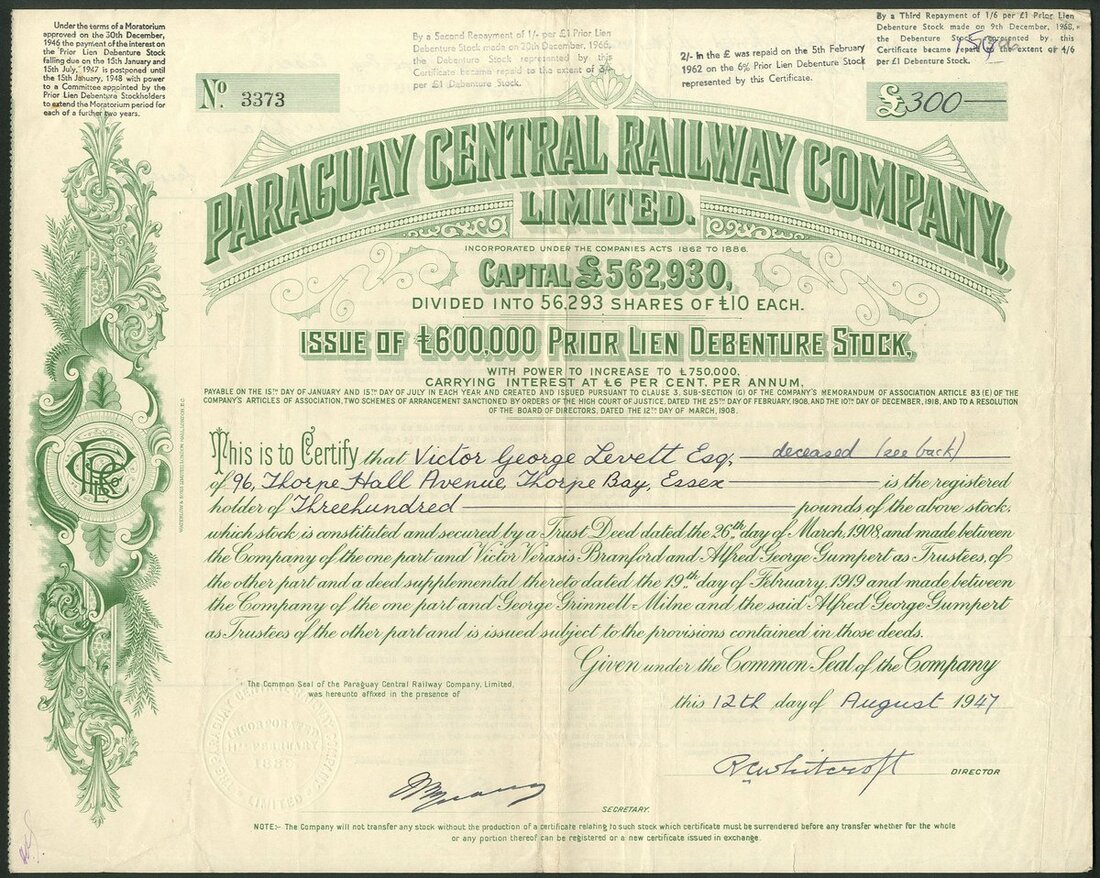 Under the terms of a Moratorium
approved on the 30th December,
1946 the payment of the interest on
the Prior Lien Debenture Stock
falling due on the 15th January and
15th July, 1947 is postponed until
the 15th January, 1948 with power
to a Committee appointed by the
Prior Lien Debenture Stockholders
to extend the Moratorium period for
each of a further two years.
By a Second Repayment of 1/- per £1 Prior Lien
Debenture Stock made on 20th December, 1966,
the Debenture Stock represented by this
Certificate became repaid to the extent of 3/-
per £1 Debenture Stock.
2/- In the £ was repaid on the 5th February
1962 on the 6% Prior Lien Debenture Stock
represented by this Certificate.
By a Third Repayment of 1/6 per £1 Prior Lien
Debenture Stock made on 9th December, 1968,
the Debenture Stock represented by this
Certificate became repaid to the extent of 4/6
per £1 Debenture Stock.
No. 3373
£300
PARAGUAY CENTRAL RAILWAY COMPANY,
LIMITED.
INCORPORATED UNDER THE COMPANIES ACTS 1862 TO 1886.
CAPITAL £562,930,
DIVIDED INTO 56,293 SHARES OF £10 EACH.
ISSUE OF £600,000 PRIOR LIEN DEBENTURE STOCK,
WITH POWER TO INCREASE TO £750,000.
CARRYING INTEREST AT £6 PER CENT. PER ANNUM,
PAYABLE ON THE 15TH DAY OF JANUARY AND 15TH DAY OF JULY IN EACH YEAR AND CREATED AND ISSUED PURSUANT TO CLAUSE 3, SUB-SECTION (G) OF THE COMPANY'S MEMORANDUM OF ASSOCIATION ARTICLE 83 (E) OF THE
COMPANY'S ARTICLES OF ASSOCIATION, TWO SCHEMES OF ARRANGEMENT SANCTIONED BY ORDERS OF THE HIGH COURT OF JUSTICE, DATED THE 25TH DAY OF FEBRUARY, 1908, AND THE 10TH DAY OF DECEMBER, 1918, AND TO A RESOLUTION
OF THE BOARD OF DIRECTORS, DATED THE 12TH DAY OF MARCH, 1908.
This is to Certify that Victor George Levett Esq, deceased (see back)
of 96, Thorpe Hall Avenue, Thorpe Bay, Essex is the registered
holder of Threehundred pounds of the above stock,
which stock is constituted and secured by a Trust Deed dated the 26th day of March, 1908, and made between
the Company of the one part and Victor Verasis Branford and Alfred George Gumpert as Trustees, of
the other part and a deed supplemental thereto dated the 19th day of February, 1919 and made between
the Company of the one part and George Grinnell-Milne and the said Alfred George Gumpert
as Trustees of the other part and is issued subject to the provisions contained in those deeds.
Given under the Common Seal of the Company
this 12th day of August 1947
The Common Seal of the Paraguay Central Railway Company, Limited,
was hereunto affixed in the presence of
INCORPORATED
FEBRUARY
LIMITED
DIRECTOR
SECRETARY.
NOTE:- The Company will not transfer any stock without the production of a certificate relating to such stock which certificate must be surrendered before any transfer whether for the whole
or any portion thereof can be registered or a new certificate issued in exchange.